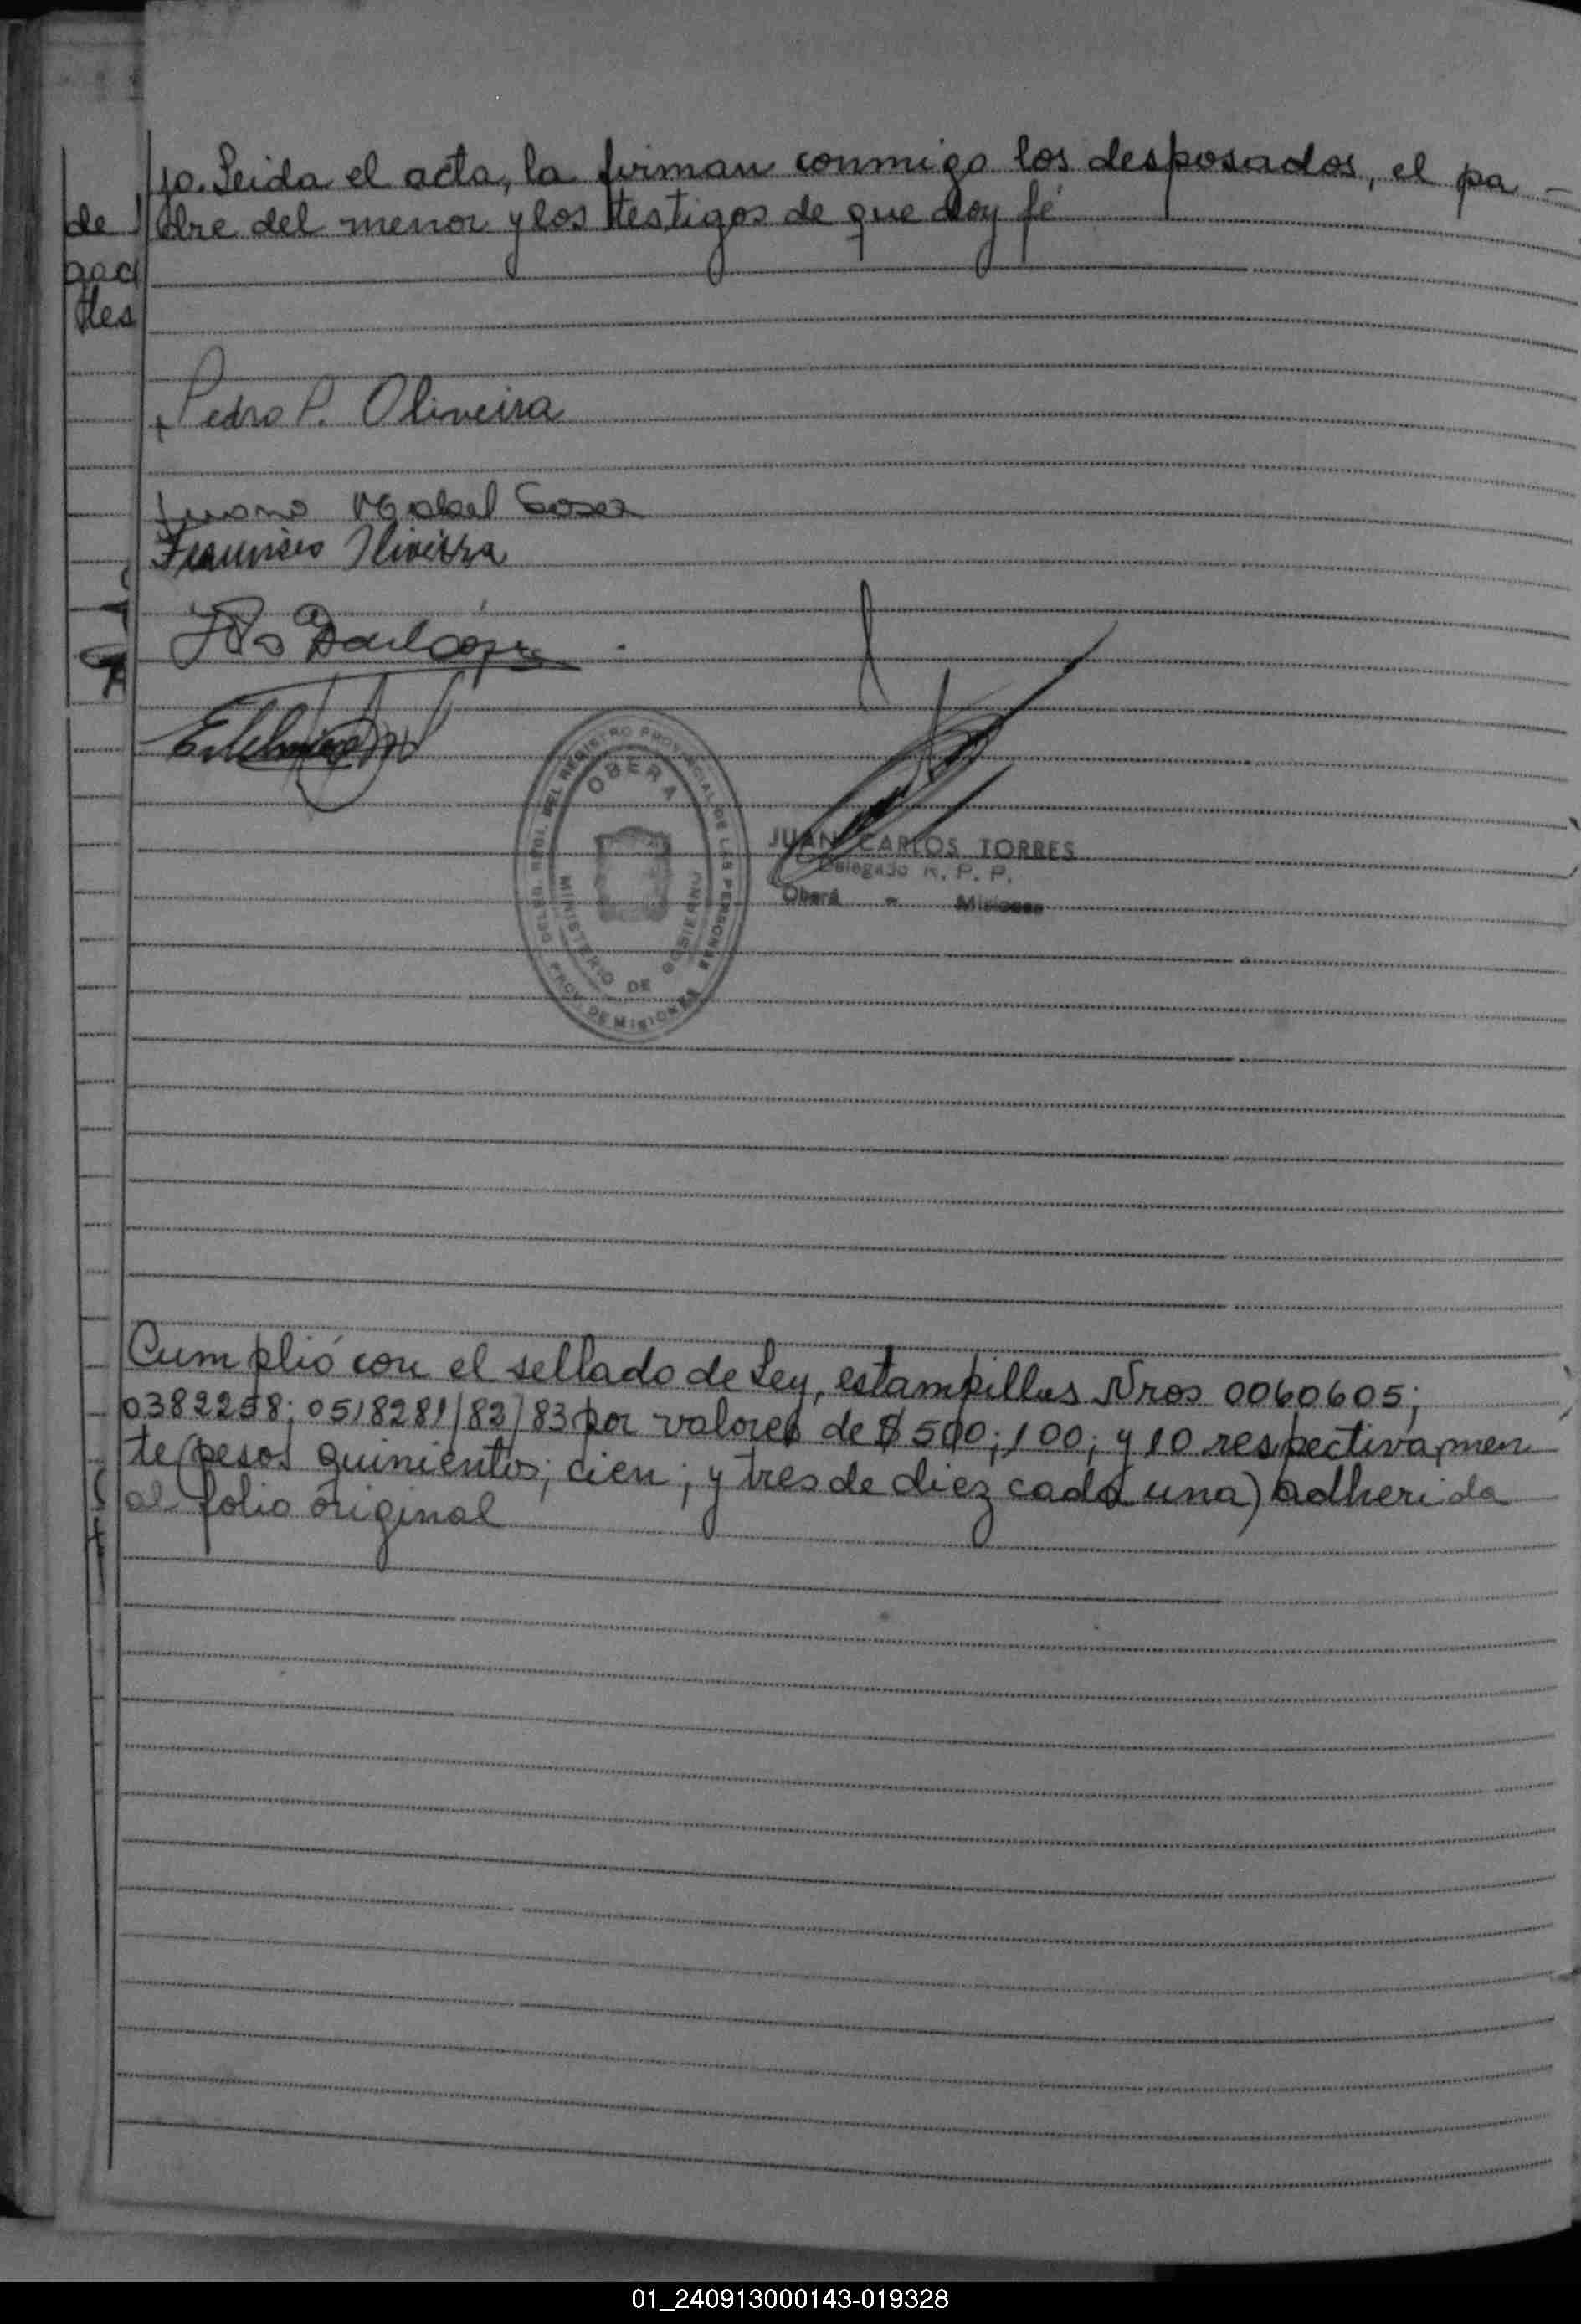 jo. Leida el acta, la firman conmigo los desposados, el pa-
dre del menor y los testigos de que doy fé
de
Hes
Pedro P. Oliveira
Mabel Sosa
Francisco Oliveira
DELEG. REGI. DEL REGISTRO PROVINCIAL DE LAS PERSONAS
OBERA
MINISTERIO DE GOBIERNO
PROV. DE MISIONES
JUAN CARLOS TORRES
Delegado R. P. P.
Oberá - Misiones
Cumplió con el sellado de Ley, estampillas Nros 0060605;
0382258; 0518281/82/83 por valores de $ 500; 100; y 10 respectivamen
te (pesos quinientos; cien; y tres de diez cada una) adherida
al folio original
01_240913000143-019328